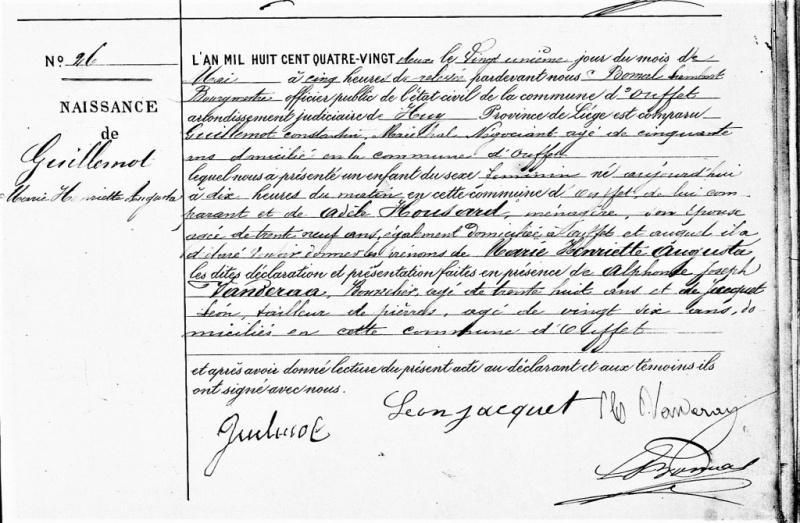 No 26
NAISSANCE
de
Guillemot
Marie Henriette Augusta
L'AN MIL HUIT CENT QUATRE-VINGT deux le Vingt unième jour du mois de
Mai à cinq heures de relevée pardevant nous Bomal Lambert
Bourgmestre officier public de l'état civil de la commune d'Ouffet
arrondissement judiciaire de Huy Province de Liége est comparu
Guillemot Constantin, Maréchal Négociant agé de cinquante
ans domicilié en la commune d'Ouffet
lequel nous a présenté un enfant du sexe féminin né aujourd'hui
à dix heures du matin en cette commune d'Ouffet, de lui com
parant et de Adèle Housard, ménagère, son épouse
agée de trente neuf ans, également domiciliée à Ouffet et auquel il a
déclaré vouloir donner les prénoms de Marie Henriette Augusta
les dites déclaration et présentation faites en présence de Alphonse Joseph
Vanderaa, Bourrelier, agé de trente huit ans et de Jacquet
Léon, tailleur de pierres, agé de vingt six ans, do
miciliés en cette commune d'Ouffet
et après avoir donné lecture du présent acte au déclarant et aux témoins ils
ont signé avec nous.
Léon Jacquet